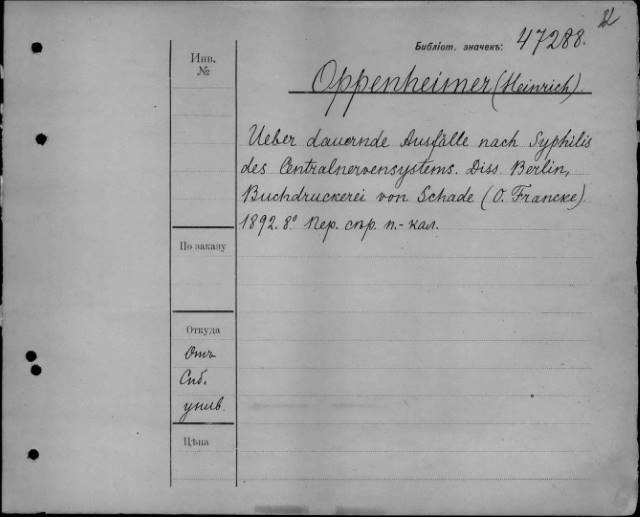 Библіот. значекъ: 47288.
Инв. №
Oppenheimer (Heinrich).
Ueber dauernde Ausfälle nach Syphilis
des Centralnervensystems. Diss. Berlin,
Buchdruckerei von Schade (O. Francke)
1892. 8° Пер. стр. п.-кал.
По заказу
Откуда
Отъ
Спб.
унив.
Цѣна